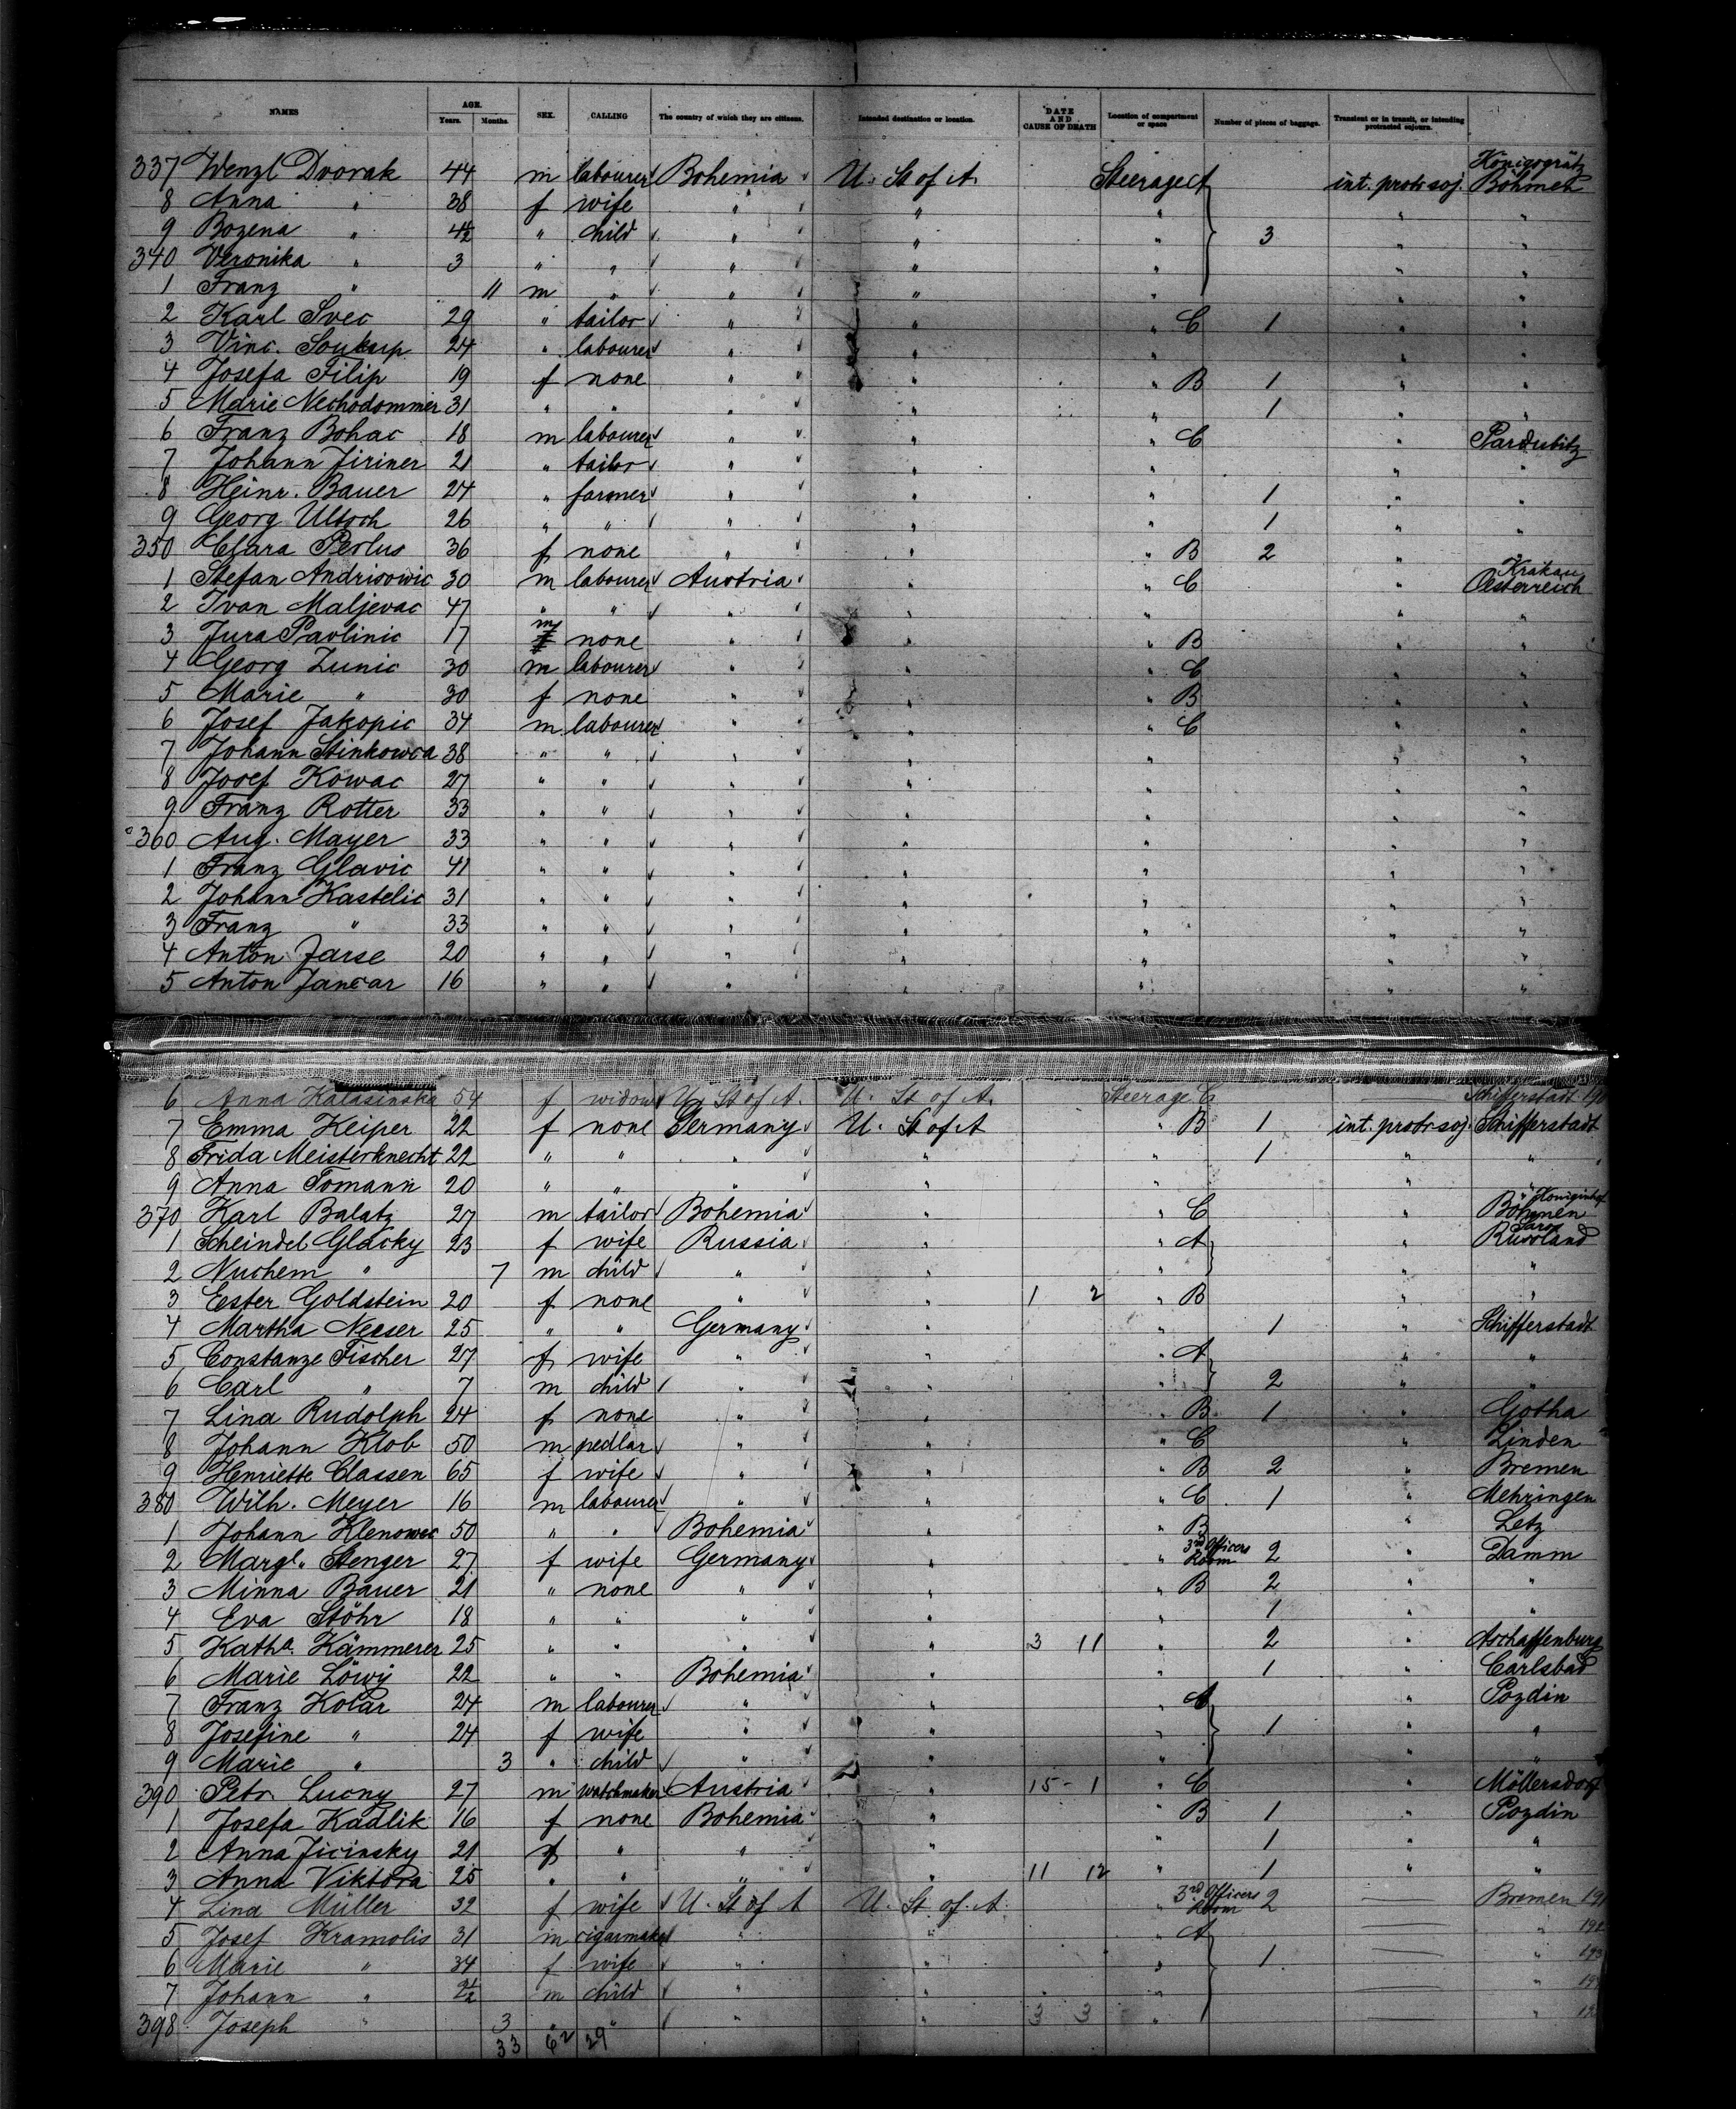 NAMES AGE. Years. Months. SEX. CALLING The country of which they are citizens. Intended destination or location. DATE AND CAUSE OF DEATH Location of compartment or space Number of pieces of baggage. Transient or in transit, or intending protracted sojourn.
337 Wenzl Dvorak 44 m labourer Bohemia U. St of A. Steerage A int. protr soj. Königgrätz Böhmen
8 Anna " 38 f wife " " " " "
9 Bozena " 4½ " child " " " 3 " "
340 Veronika " 3 " " " " " " "
1 Franz " 11 m " " " " " "
2 Karl Svec 29 " tailor " " " C 1 " "
3 Vinc. Soukup 24 " labourer " " " " "
4 Josefa Filip 19 f none " " " B 1 " "
5 Marie Nechodommer 31 " " " " " 1 " "
6 Franz Bohac 18 m labourer " " " C " Pardubitz
7 Johann Jiriner 21 " tailor " " " " "
8 Heinr. Bauer 24 " farmer " " " 1 " "
9 Georg Ultsch 26 " " " " " 1 " "
350 Clara Perlus 36 f none " " " B 2 "
1 Stefan Andrisowic 30 m labourer Austria " " C " Krakau Oesterreich
2 Ivan Maljevac 47 " " " " " " "
3 Jura Pavlinic 17 m none " " " B " "
4 Georg Zunic 30 m labourer " " " C " "
5 Marie " 30 f none " " " B " "
6 Josef Jakopic 34 m labourer " " " C " "
7 Johann Stinkowca 38 " " " " " " "
8 Josef Kowac 27 " " " " " " "
9 Franz Rotter 33 " " " " " " "
360 Aug. Mayer 33 " " " " " " "
1 Franz Glavic 41 " " " " " " "
2 Johann Kastelic 31 " " " " " " "
3 Franz " 33 " " " " " " "
4 Anton Jarse 20 " " " " " " "
5 Anton Jancar 16 " " " " " " "
6 Anna Kalasinska 54 f widow U. St of A. U. St of A. Steerage C Schifferstadt
7 Emma Keiper 22 f none Germany U. St of A " B 1 int. protr soj. Schifferstadt
8 Frida Meisterknecht 22 " " " " " 1 " "
9 Anna Tomann 20 " " " " " " "
370 Karl Balatz 27 m tailor Bohemia " " C " Königinhof Böhmen
1 Scheindel Glacky 23 f wife Russia " " A " Russland
2 Nuchem " 7 m child " " " " "
3 Ester Goldstein 20 f none " " 1 2 " B " "
4 Martha Neeser 25 " " Germany " " 1 " Schifferstadt
5 Constanze Fischer 27 f wife " " " A " "
6 Carl " 7 m child " " " 2 " "
7 Lina Rudolph 24 f none " " " B 1 " Gotha
8 Johann Klob 50 m pedlar " " " C " Linden
9 Henriette Classen 65 f wife " " " B 2 " Bremen
380 Wilh. Meyer 16 m labourer " " " C 1 " Mehringen
1 Johann Klenowec 50 " " Bohemia " " B " Letz
2 Margt. Stenger 27 f wife Germany " " 3rd Officers Room 2 " Damm
3 Minna Bauer 21 " none " " " B 2 " "
4 Eva Stöhr 18 " " " " " 1 " "
5 Katha. Kämmerer 25 " " " " 3 11 " 2 " Aschaffenburg
6 Marie Löwy 22 " " Bohemia " " 1 " Carlsbad
7 Franz Kolar 24 m labourer " " " A " Pozdin
8 Josefine " 24 f wife " " " 1 " "
9 Marie " 3 " child " " " " "
390 Petr Lucny 27 m watchmaker Austria " 15 - 1 " C " Möllersdorf
1 Josefa Kadlik 16 f none Bohemia " " B 1 " Pozdin
2 Anna Jicinsky 21 f " " " " 1 " "
3 Anna Viktora 25 " " " " 11 12 " 1 " "
4 Lina Müller 32 f wife U. St of A U. St of. A. " 3rd Officers Room 2 Bremen
5 Josef Kramolis 31 m cigarmaker " " " A " 192
6 Marie " 34 f wife " " " 1 " 193
7 Johann " 2½ m child " " " "
398 Joseph " 3 " " " " 3 3 " "
33 62 29